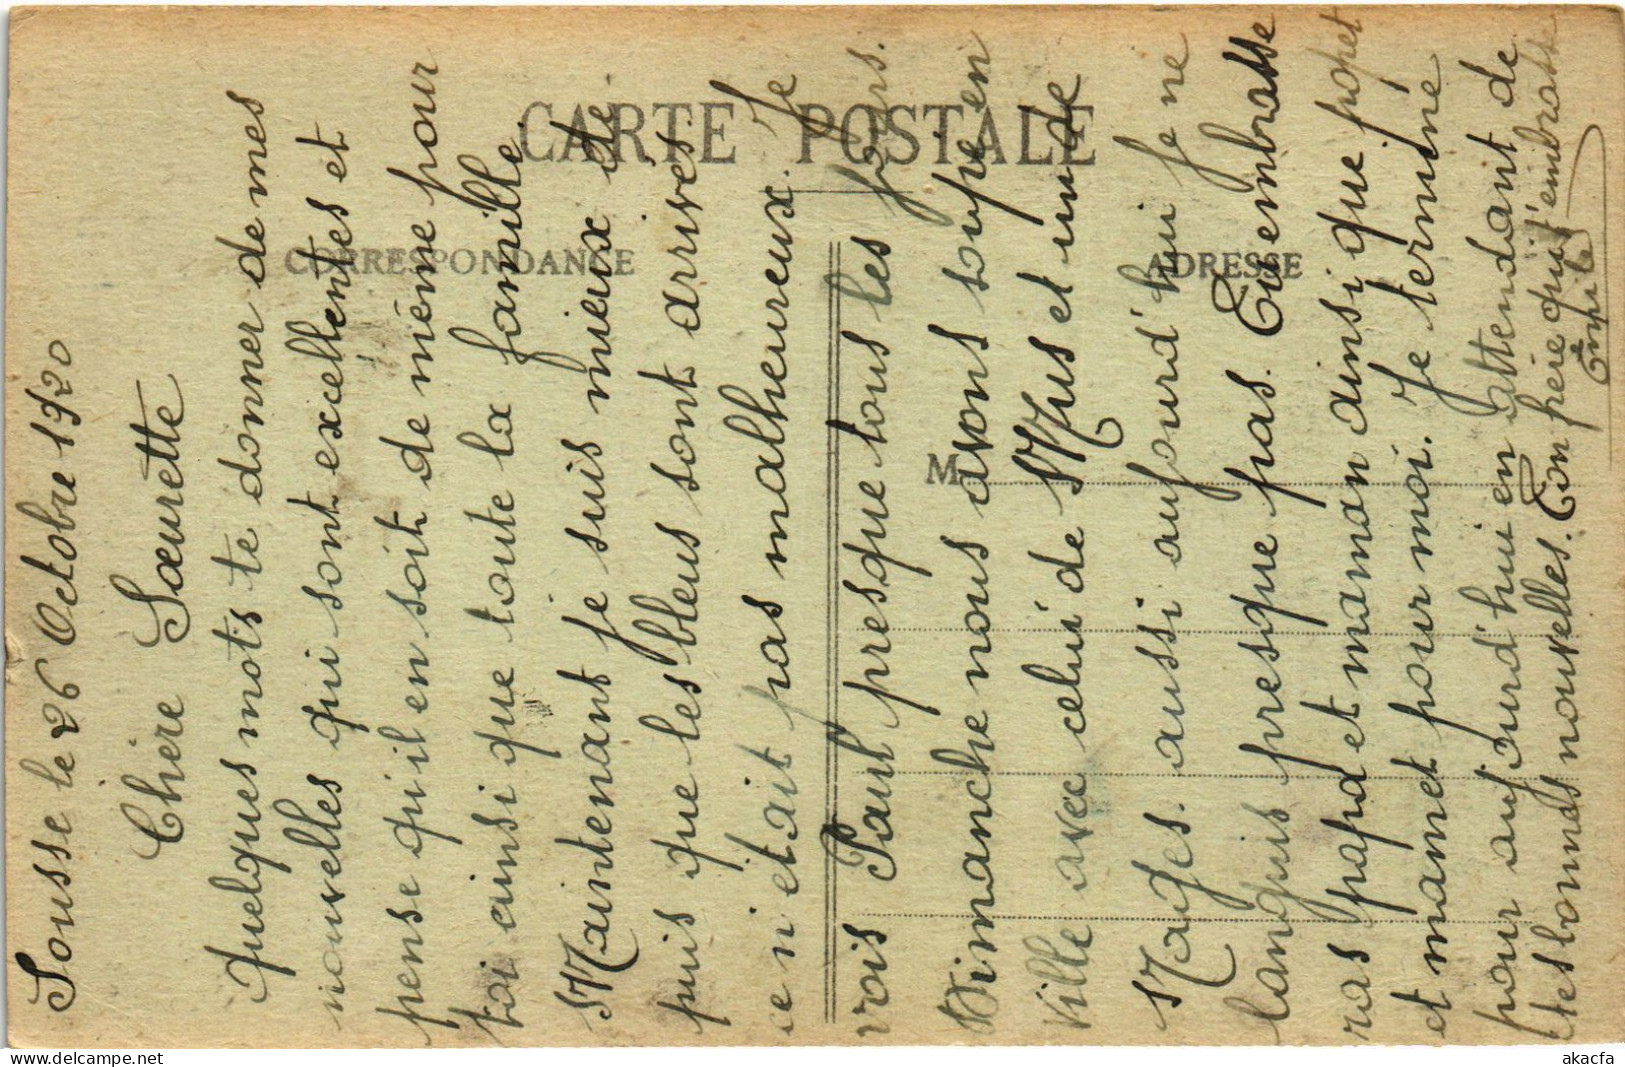 CARTE POSTALE
CORRESPONDANCE
ADRESSE
M
Sousse le 26 Octobre 1920
Chère Sœurette
Quelques mots te donner de mes
nouvelles qui sont excellentes et
pense qu'il en soit de même pour
toi ainsi que toute la famille
Maintenant je suis mieux et de
puis que les bleus sont arrivés
ce n'était pas malheureux. Je
vois Paul presque tous les jours.
Dimanche nous avons soupé en
ville avec celui de Mus et un de
Nages. aussi aujourd'hui je ne
languis presque pas. Tu embrasse
ras papa et maman ainsi que papet
et mamet pour moi. Je termine
pour aujourd'hui en attendant de
tes bonnes nouvelles. Ton frère qui t'embrasse